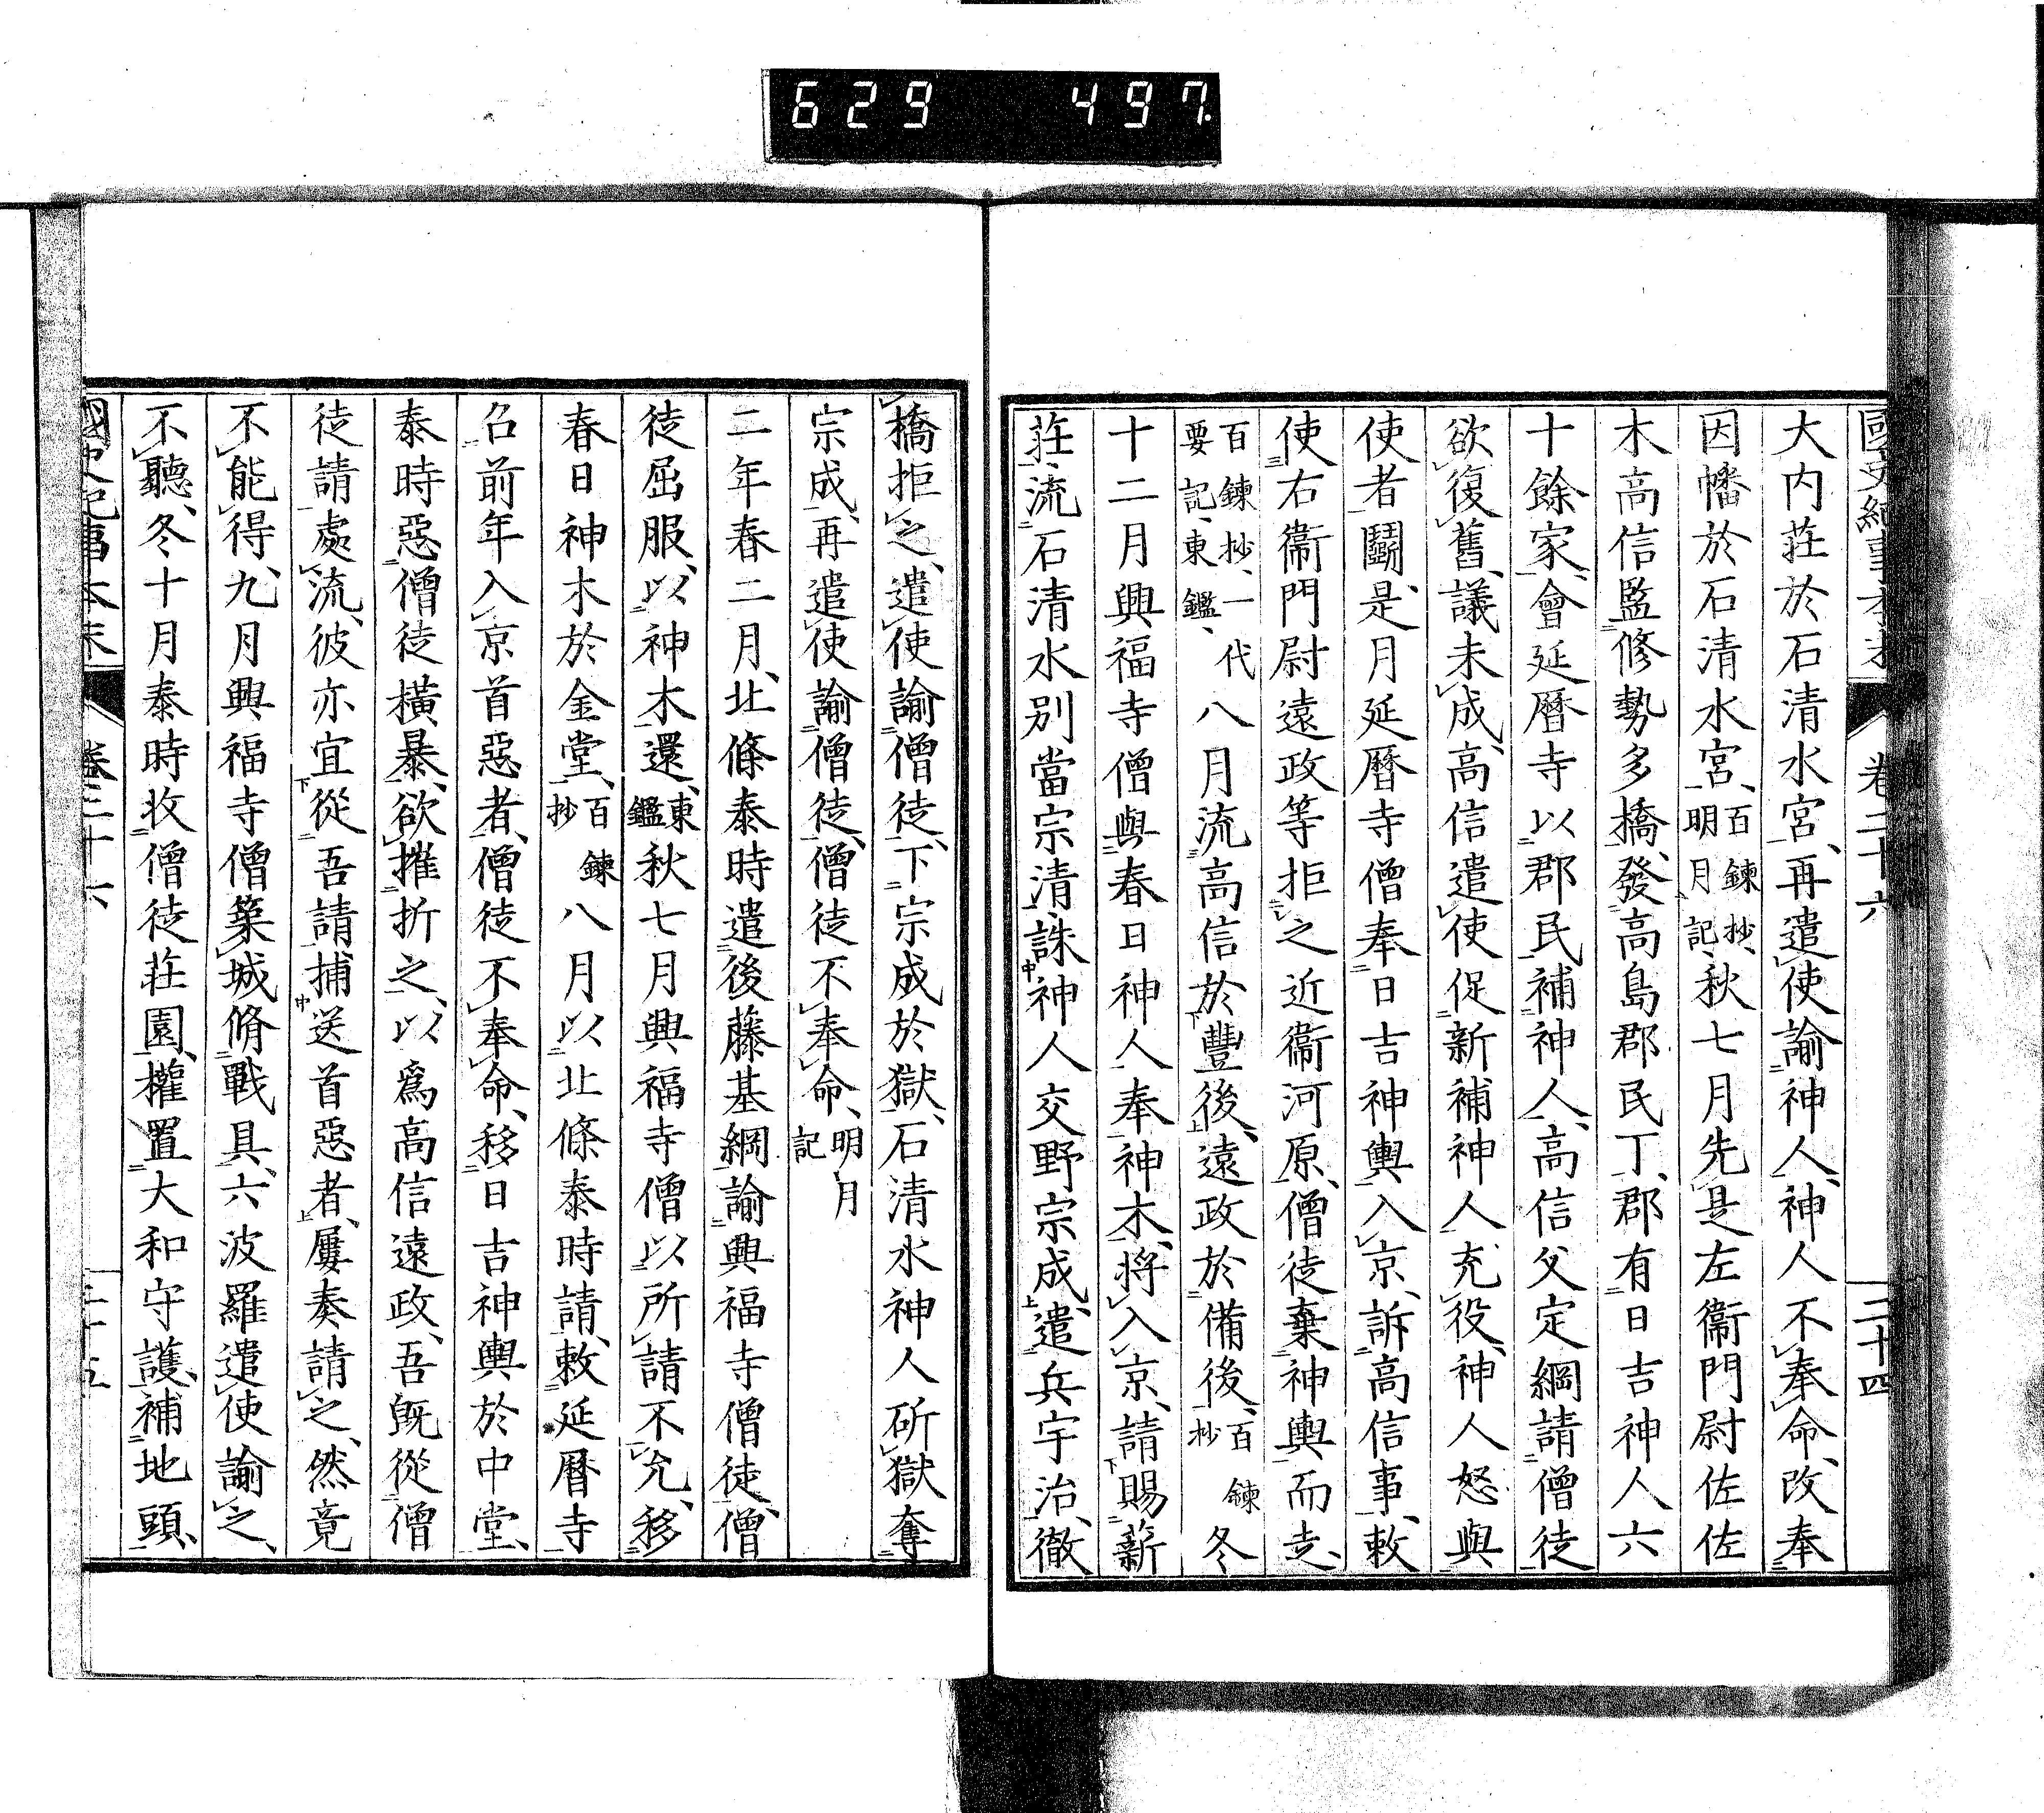 629 497
國史紀事本末 卷二十六 二十四
大内莊於石清水宮、再遣使諭神人、神人不奉命、改奉
因幡於石清水宮、百鍊抄、明月記、秋七月先是左衞門尉佐佐
木高信監修勢多橋、發高島郡民丁、郡有日吉神人六
十餘家、會延曆寺以郡民補神人、高信父定綱請僧徒
欲復舊、議未成、高信遣使促新補神人充役、神人怒與
使者鬪、是月延曆寺僧奉日吉神輿入京、訴高信事、敕
使右衞門尉遠政等拒之近衞河原、僧徒棄神輿而走、
百鍊抄、一代要記、東鑑、八月流高信於豐後、遠政於備後、百鍊抄冬
十二月興福寺僧與春日神人奉神木、將入京、請賜薪
莊、流石清水別當宗清、誅神人交野宗成、遣兵宇治、徹
橋拒之、遣使諭僧徒、下宗成於獄、石清水神人斫獄奪
宗成、再遣使諭僧徒、僧徒不奉命、明月記
二年春二月、北條泰時遣後藤基綱諭興福寺僧徒、僧
徒屈服、以神木還、東鑑秋七月興福寺僧以所請不允、移
春日神木於金堂、百鍊抄八月以北條泰時請、敕延曆寺
召前年入京首惡者、僧徒不奉命、移日吉神輿於中堂、
泰時惡僧徒橫暴、欲摧折之、以爲高信遠政、吾既從僧
徒請處流、彼亦宜從吾請、捕送首惡者、屢奏請之、然竟
不能得、九月興福寺僧築城脩戰具、六波羅遣使諭之、
不聽、冬十月泰時收僧徒莊園、權置大和守護、補地頭、
國史紀事本末 卷二十六 二十五